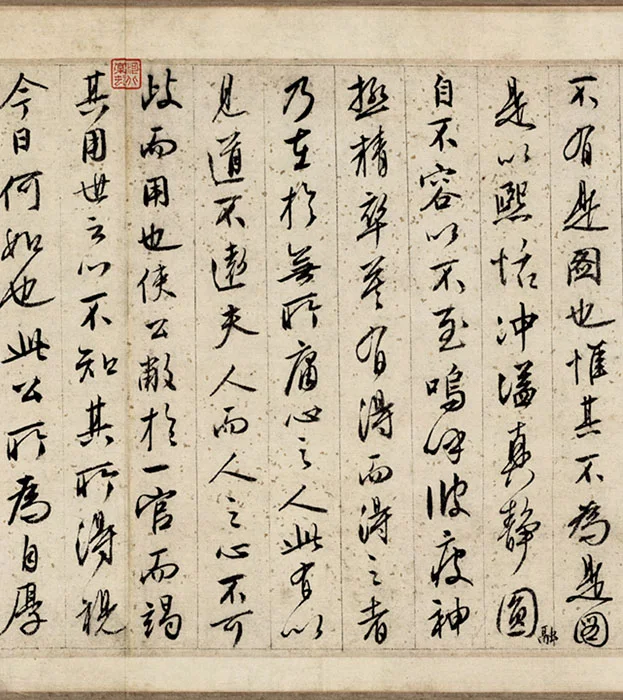 不有是圖也惟其不為是圖
是以熙恬沖澹真靜圓融
自不容以不至嗚呼彼疲神
極精卒莫有得而得之者
乃在於無所庸心之人此有以
見道不遠夫人而人之心不可
歧而用也使公敝於一官而竭
其用世之心不知其所得視
今日何如也此公所為自厚